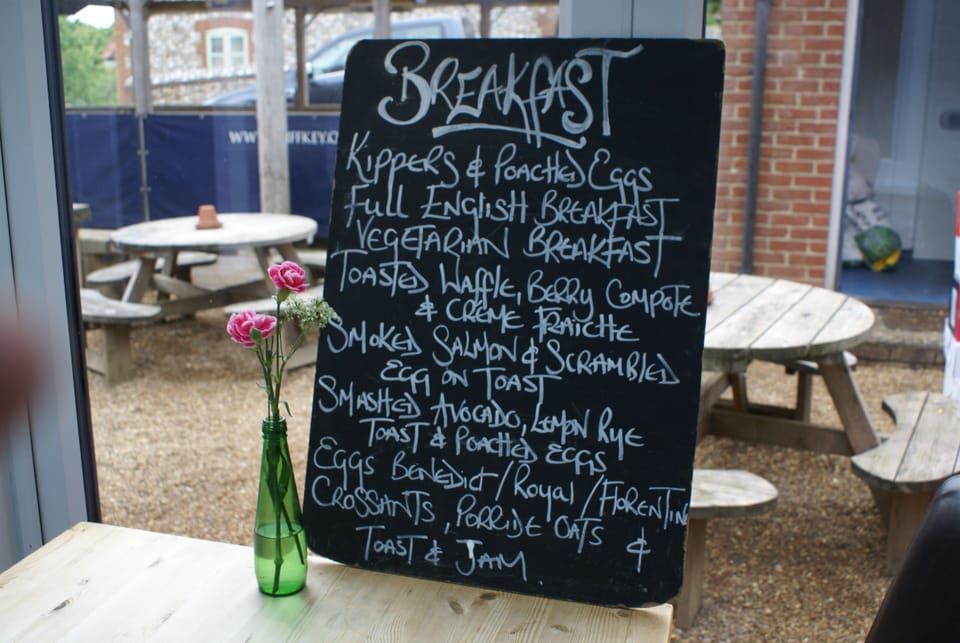 BREAKFAST
KIPPERS & POACHED EGGS
FULL ENGLISH BREAKFAST
VEGETARIAN BREAKFAST
TOASTED WAFFLE, BERRY COMPOTE
& CRÈME FRAICHE
SMOKED SALMON & SCRAMBLED
EGG ON TOAST
SMASHED AVOCADO, LEMON RYE
TOAST & POACHED EGGS
EGGS BENEDICT / ROYAL / FLORENTIN
CROSSANTS, PORRIDE OATS &
TOAST & JAM.